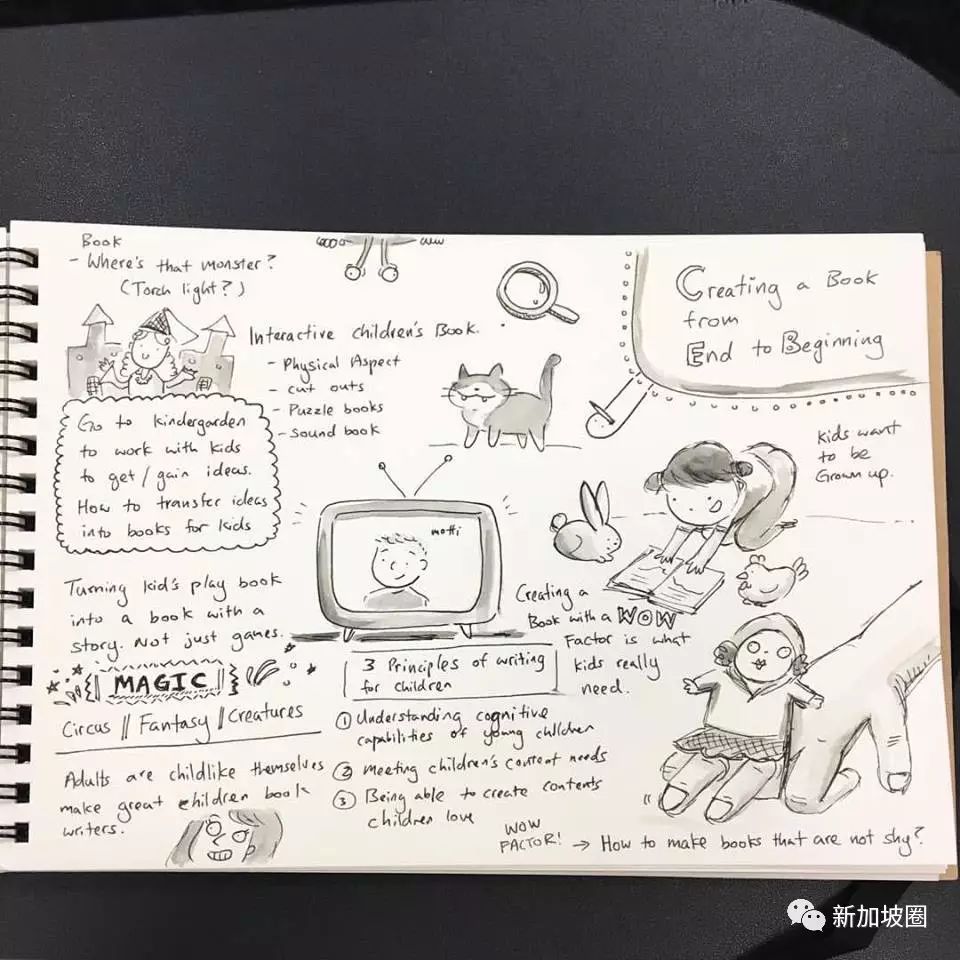 Book
- Where's that monster?
(Torch light?)
Creating a Book
from
End to Beginning
Interactive children's Book.
- Physical Aspect
- cut outs
- Puzzle books
- Sound book
Go to kindergarden
to work with kids
to get / gain ideas.
How to transfer ideas
into books for kids
kids want
to be
Grown up.
motti
Turning kid's play book
into a book with a
story. Not just games.
Creating a
Book with a WOW
Factor is what
kids really
need.
MAGIC
Circus || Fantasy || Creatures
3 Principles of writing
for children
① Understanding cognitive
capabilities of young children
② Meeting children's content needs
③ Being able to create contents
children love
Adults are childlike themselves
make great children book
writers.
WOW
FACTOR! → How to make books that are not shy?
新加坡圈